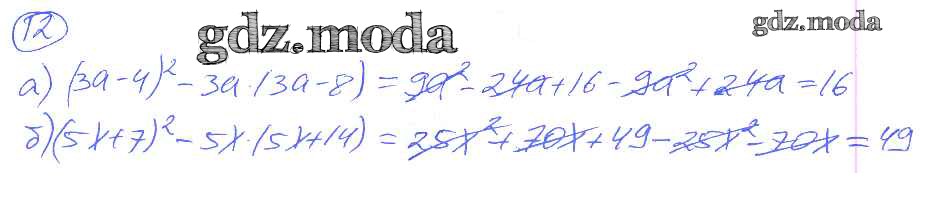 12
gdz.moda
gdz.moda
а) (3a-4)² - 3a·(3a-8) = 9a² - 24a + 16 - 9a² + 24a = 16
б) (5x+7)² - 5x·(5x+14) = 25x² + 70x + 49 - 25x² - 70x = 49